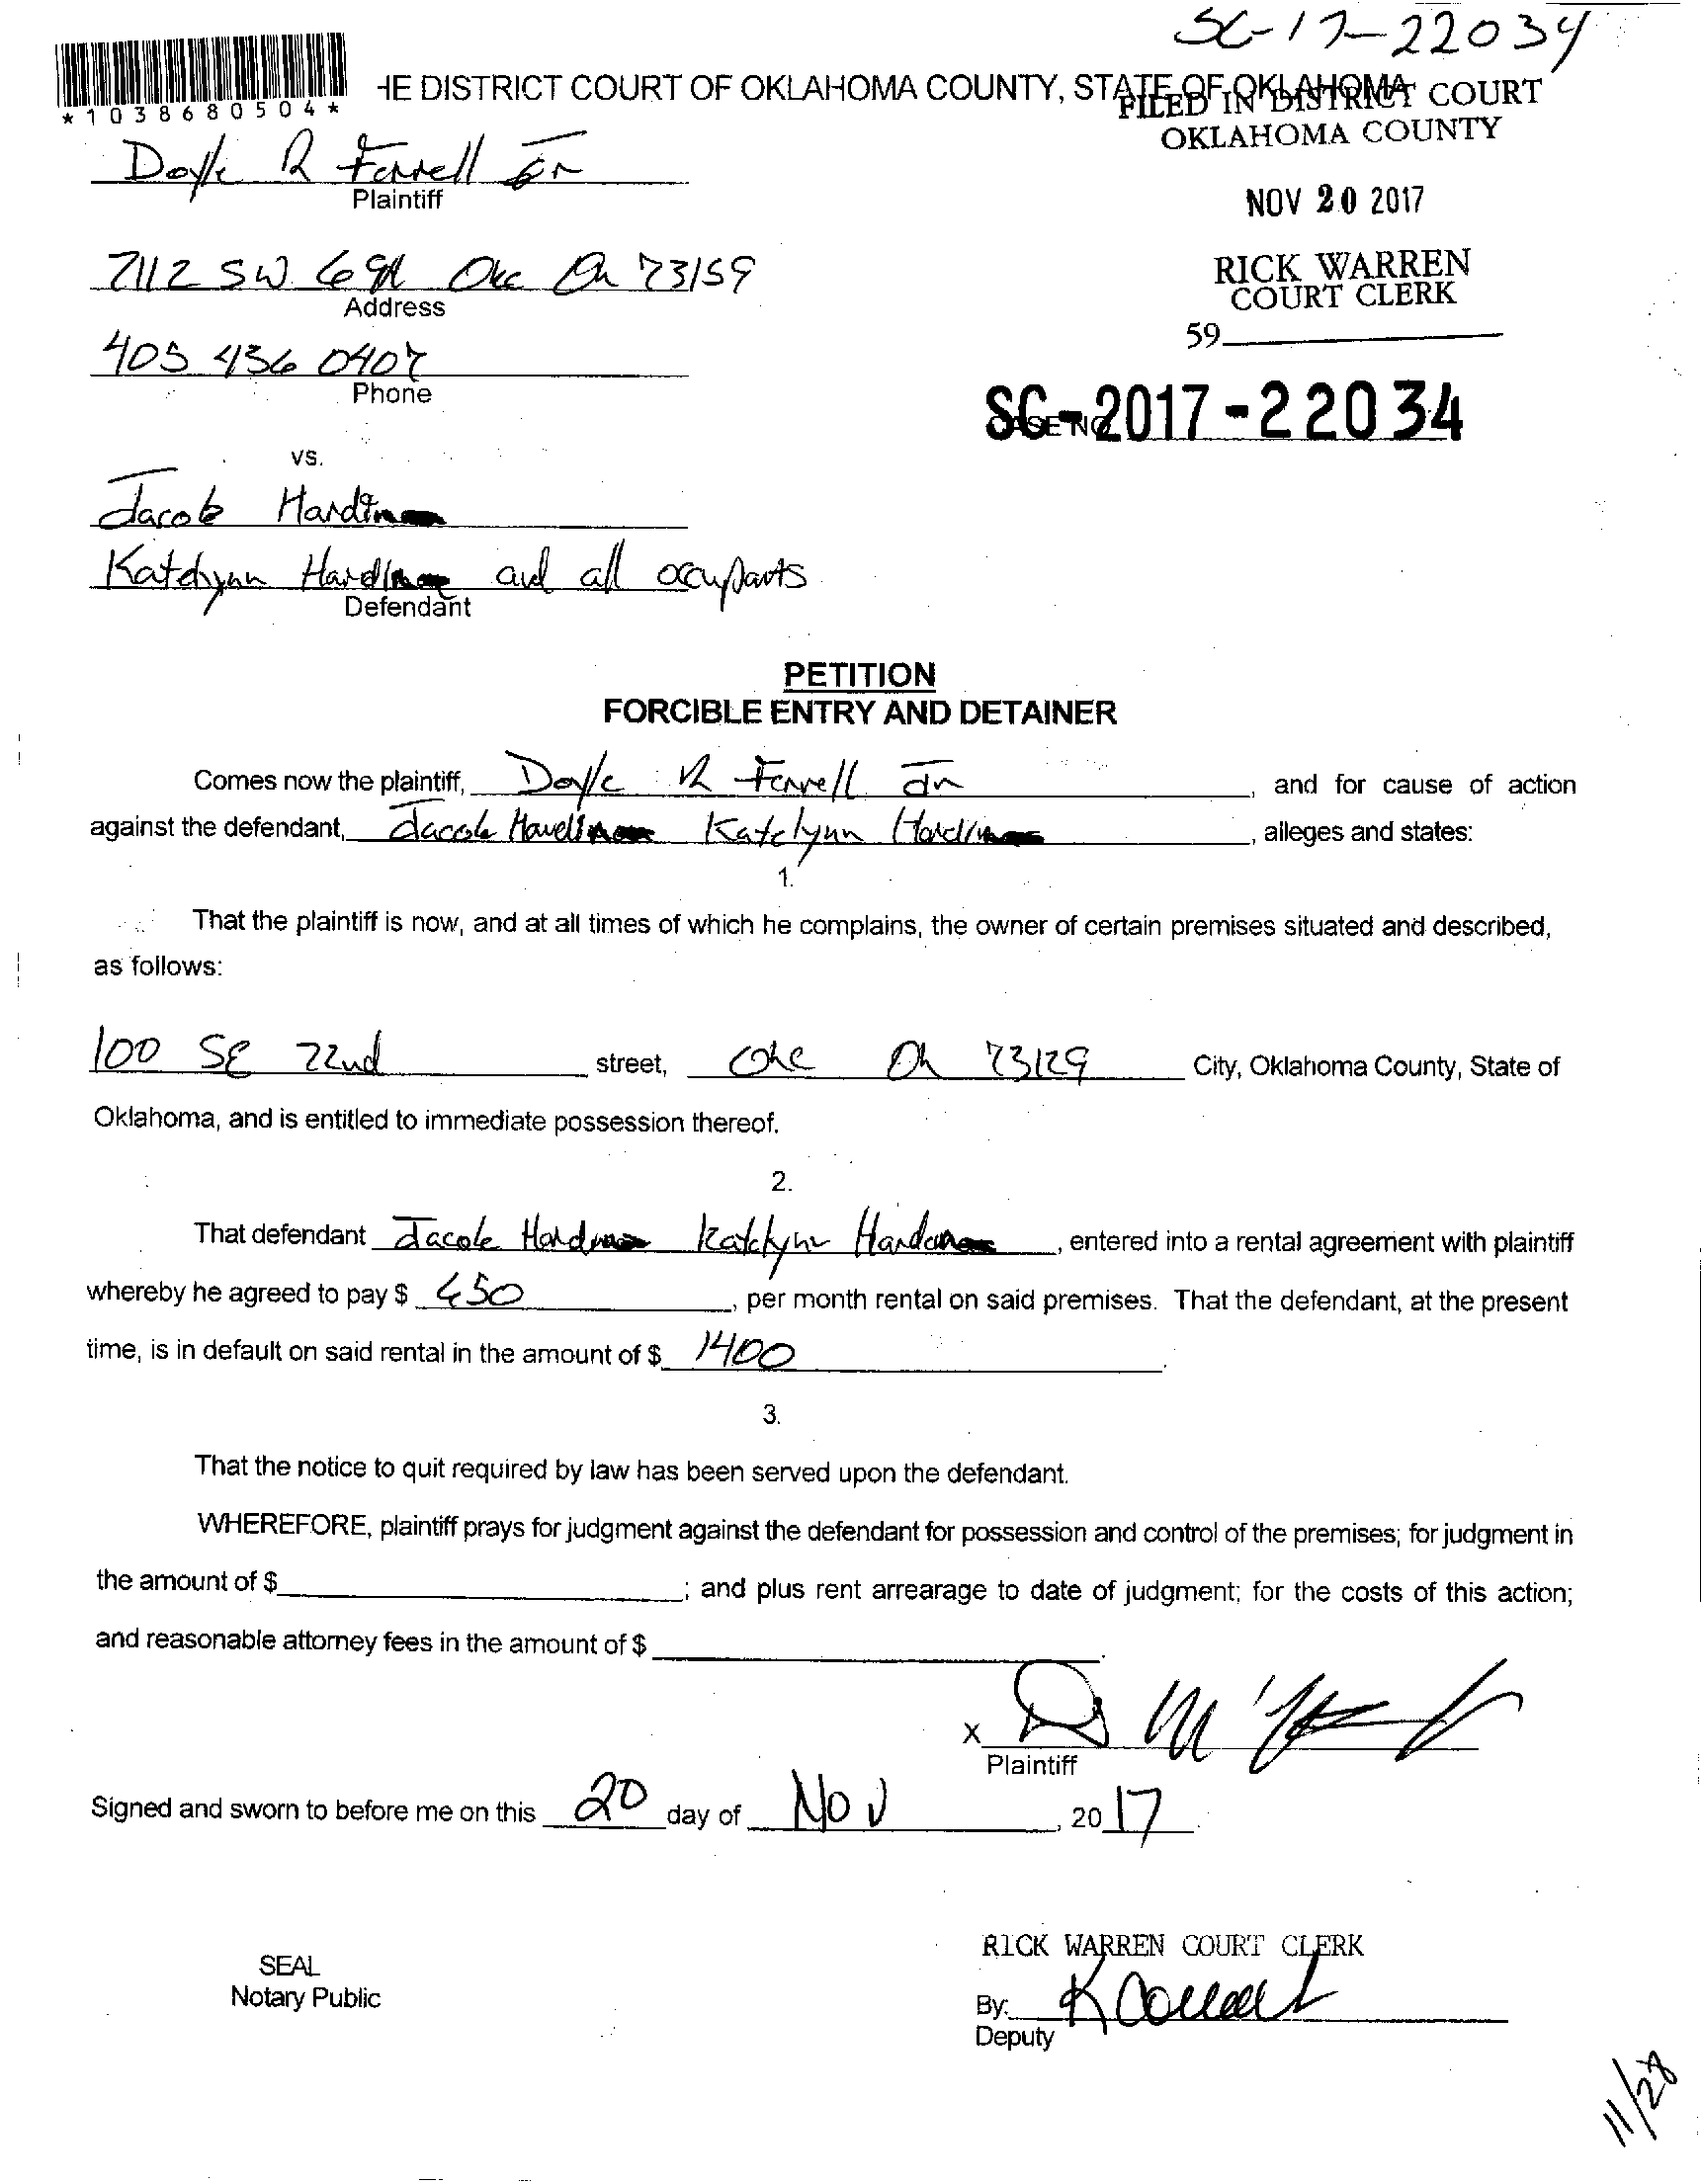 SC-17-22034
HE DISTRICT COURT OF OKLAHOMA COUNTY, STATE OF OKLAHOMA
*1038680504*
FILED IN DISTRICT COURT
OKLAHOMA COUNTY
Doyle R Ferrell Jr
Plaintiff
NOV 20 2017
7112 SW 69th Okc Ok 73159
Address
RICK WARREN
COURT CLERK
59
405 436 0407
Phone
CASE NO.
SC-2017-22034
vs.
Jacob
Katelynn and all occupants
Defendant
PETITION
FORCIBLE ENTRY AND DETAINER
Comes now the plaintiff, Doyle R Ferrell Jr, and for cause of action
against the defendant, Jacob Katelynn, alleges and states:
1.
That the plaintiff is now, and at all times of which he complains, the owner of certain premises situated and described,
as follows:
100 SE 22nd street, Okc Ok 73129 City, Oklahoma County, State of
Oklahoma, and is entitled to immediate possession thereof.
2.
That defendant Jacob Katelynn, entered into a rental agreement with plaintiff
whereby he agreed to pay $ 650, per month rental on said premises. That the defendant, at the present
time, is in default on said rental in the amount of $ 1400.
3.
That the notice to quit required by law has been served upon the defendant.
WHEREFORE, plaintiff prays for judgment against the defendant for possession and control of the premises; for judgment in
the amount of $ ; and plus rent arrearage to date of judgment; for the costs of this action;
and reasonable attorney fees in the amount of $ .
X
Plaintiff
Signed and sworn to before me on this 20 day of Nov, 2017.
RICK WARREN COURT CLERK
SEAL
Notary Public
By:
Deputy
11/28